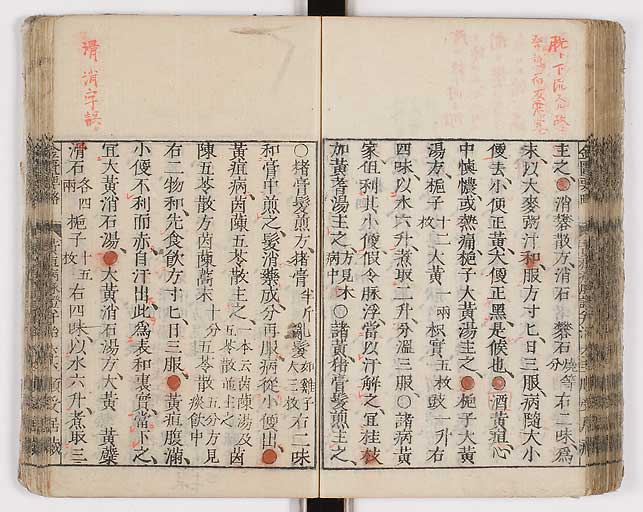 主之●消礬散方消石 礬石燒等分右二味爲
末以大麥粥汁和服方寸匕日三服病隨大小
便去小便正黄大便正黑是候也●酒黄疸心
中懊憹或熱痛梔子大黄湯主之●梔子大黄
湯方梔子十二枚大黄一兩枳實五枚豉一升右
四味以水六升煮取二升分溫三服○諸病黄
家但利其小便假令脉浮當以汗解之宜桂枝
加黄耆湯主之方見水病中○諸黄猪膏髮煎主之
滑消字誤
○猪膏髮煎方猪膏半斤亂髮如雞子大三枚右二味
和膏中煎之髮消藥成分再服病從小便出●
黄疸病茵陳五苓散主之一本云茵陳湯及五苓散並主之茵
陳五苓散方茵陳蒿末十分五苓散五分方見痰飲中
右二物和先食飲方寸匕日三服●黄疸腹滿
小便不利而赤自汗出此爲表和裏實當下之
宜大黄消石湯●大黄消石湯方大黄 黄蘗
滑石各四兩梔子十五枚右四味以水六升煮取三
金匱要略